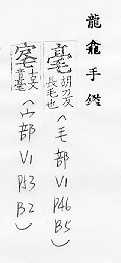 龍龕手鑑
毫 胡刀反
長毛也
(毛部 V1 P46 B5)
古文
音毫
(宀部 V1 P53 B2)